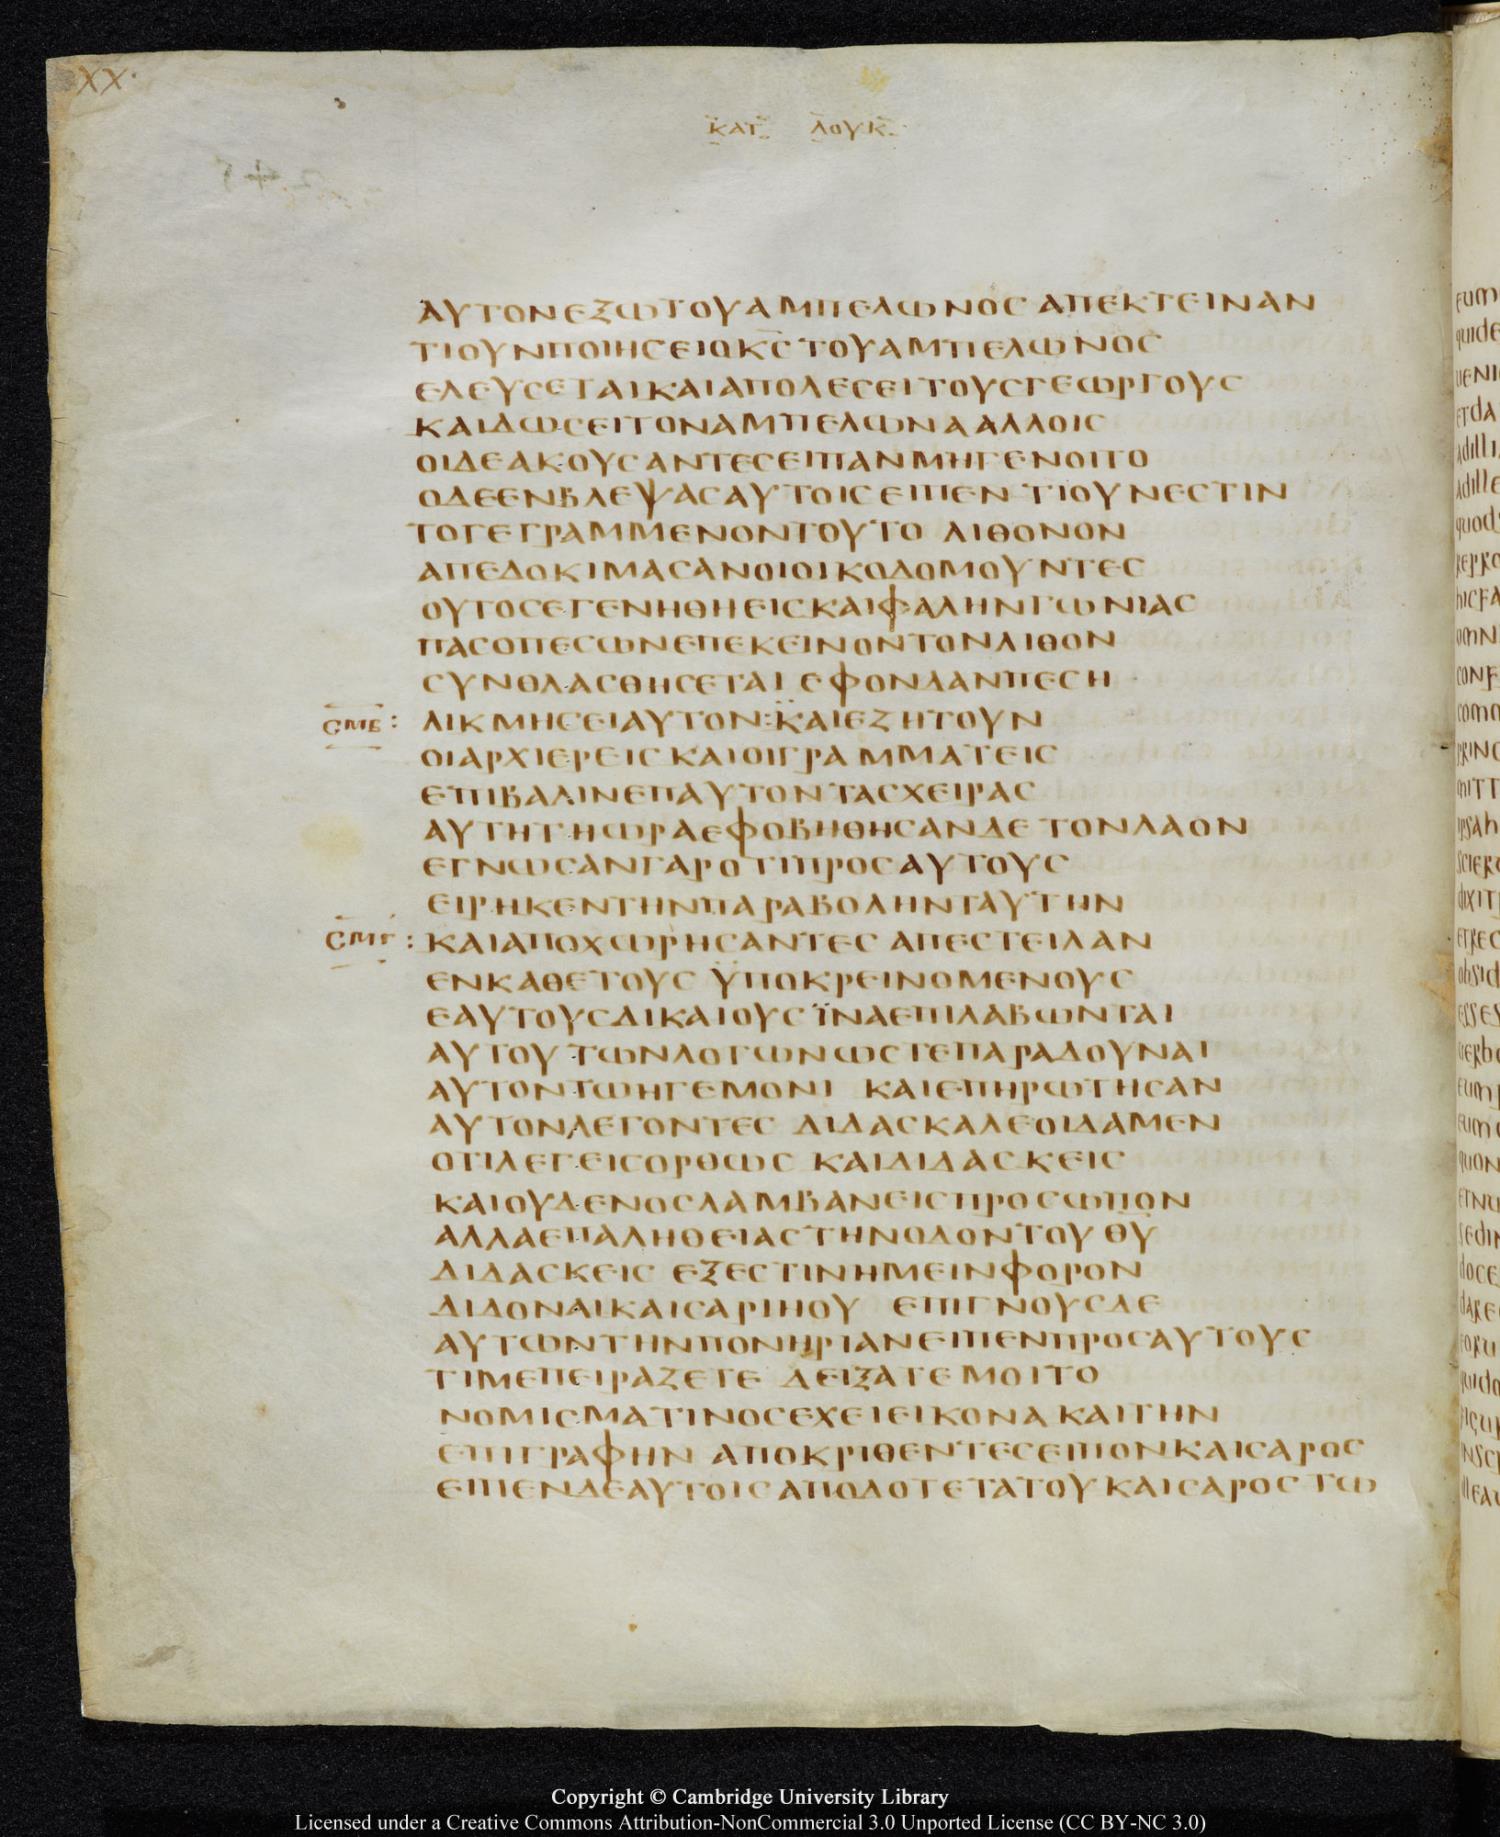 XX·
ΚΑΤ ΛΟΥΚ
ΑΥΤΟΝΕΞΩΤΟΥΑΜΠΕΛΩΝΟϹ ΑΠΕΚΤΕΙΝΑΝ
ΤΙΟΥΝΠΟΙΗϹΕΙΟΚ̅Ϲ̅ ΤΟΥΑΜΠΕΛΩΝΟϹ
ΕΛΕΥϹΕΤΑΙΚΑΙΑΠΟΛΕϹΕΙΤΟΥϹΓΕΩΡΓΟΥϹ
ΚΑΙΔΩϹΕΙΤΟΝΑΜΠΕΛΩΝΑΑΛΛΟΙϹ
ΟΙΔΕΑΚΟΥϹΑΝΤΕϹΕΙΠΑΝΜΗΓΕΝΟΙΤΟ
ΟΔΕΕΝΒΛΕΨΑϹΑΥΤΟΙϹΕΙΠΕΝ ΤΙΟΥΝΕϹΤΙΝ
ΤΟΓΕΓΡΑΜΜΕΝΟΝΤΟΥΤΟ ΛΙΘΟΝΟΝ
ΑΠΕΔΟΚΙΜΑϹΑΝΟΙΟΙΚΟΔΟΜΟΥΝΤΕϹ
ΟΥΤΟϹΕΓΕΝΗΘΗΕΙϹΚΑΙΦΑΛΗΝΓΩΝΙΑϹ
ΠΑϹΟΠΕϹΩΝΕΠΕΚΕΙΝΟΝΤΟΝΛΙΘΟΝ
ϹΥΝΘΛΑϹΘΗϹΕΤΑΙ ΕΦΟΝΔΑΝΠΕϹΗ
ϹΜΒ : ΛΙΚΜΗϹΕΙΑΥΤΟΝ:ΚΑΙΕΖΗΤΟΥΝ
ΟΙΑΡΧΙΕΡΕΙϹΚΑΙΟΙΓΡΑΜΜΑΤΕΙϹ
ΕΠΙΒΑΛΙΝΕΠΑΥΤΟΝΤΑϹΧΕΙΡΑϹ
ΑΥΤΗΤΗΩΡΑΕΦΟΒΗΘΗϹΑΝΔΕ ΤΟΝΛΑΟΝ
ΕΓΝΩϹΑΝΓΑΡΟΤΙΠΡΟϹΑΥΤΟΥϹ
ΕΙΡΗΚΕΝΤΗΝΠΑΡΑΒΟΛΗΝΤΑΥΤΗΝ
ϹΜΓ : ΚΑΙΑΠΟΧΩΡΗϹΑΝΤΕϹ ΑΠΕϹΤΕΙΛΑΝ
ΕΝΚΑΘΕΤΟΥϹ ΫΠΟΚΡΕΙΝΟΜΕΝΟΥϹ
ΕΑΥΤΟΥϹΔΙΚΑΙΟΥϹ ΪΝΑΕΠΙΛΑΒΩΝΤΑΙ
ΑΥΤΟΥ ΤΩΝΛΟΓΩΝΩϹΤΕΠΑΡΑΔΟΥΝΑΙ
ΑΥΤΟΝΤΩΗΓΕΜΟΝΙ ΚΑΙΕΠΗΡΩΤΗϹΑΝ
ΑΥΤΟΝΛΕΓΟΝΤΕϹ ΔΙΔΑϹΚΑΛΕΟΙΔΑΜΕΝ
ΟΤΙΛΕΓΕΙϹΟΡΘΩϹ ΚΑΙΔΙΔΑϹΚΕΙϹ
ΚΑΙΟΥΔΕΝΟϹΛΑΜΒΑΝΕΙϹΠΡΟϹΩΠΟΝ
ΑΛΛΑΕΠΑΛΗΘΕΙΑϹΤΗΝΟΔΟΝΤΟΥ Θ̅Υ̅
ΔΙΔΑϹΚΕΙϹ ΕΞΕϹΤΙΝΗΜΕΙΝΦΟΡΟΝ
ΔΙΔΟΝΑΙΚΑΙϹΑΡΙΗΟΥ ΕΠΙΓΝΟΥϹΔΕ
ΑΥΤΩΝΤΗΝΠΟΝΗΡΙΑΝΕΙΠΕΝΠΡΟϹΑΥΤΟΥϹ
ΤΙΜΕΠΕΙΡΑΖΕΤΕ ΔΕΙΞΑΤΕΜΟΙΤΟ
ΝΟΜΙϹΜΑΤΙΝΟϹΕΧΕΙΕΙΚΟΝΑΚΑΙΤΗΝ
ΕΠΙΓΡΑΦΗΝ ΑΠΟΚΡΙΘΕΝΤΕϹΕΙΠΟΝΚΑΙϹΑΡΟϹ
ΕΙΠΕΝΔΕΑΥΤΟΙϹΑΠΟΔΟΤΕΤΑΤΟΥΚΑΙϹΑΡΟϹΤΩ
Copyright © Cambridge University Library
Licensed under a Creative Commons Attribution-NonCommercial 3.0 Unported License (CC BY-NC 3.0)